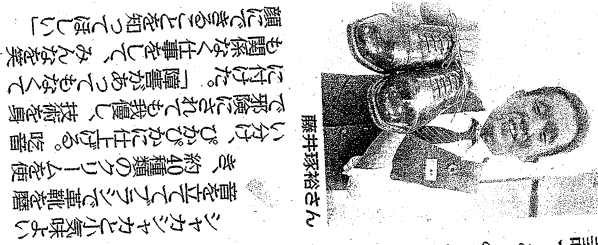 シャカシャカと小気味よい
音を立ててブラシで革靴を磨
き、約40種類のクリームを使
い分け、ぴかぴかに仕上げる。吃音
で邪険にされても我慢し、技術を身
に付けた。「障害があってもなくて
も関係なく仕事をして、みんなを笑
顔にできることを知ってほしい」
藤井琢裕さん